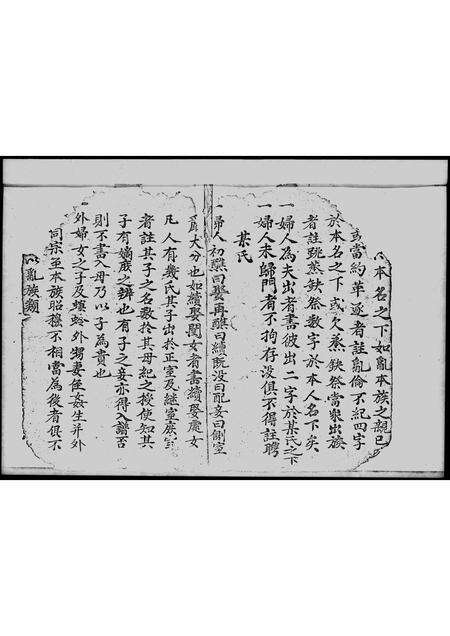 本名之下如亂本族之親已
當約革逐者註亂倫不紀四字
於本名之下或欠烝缺祭當衆出族
者註跳烝缺祭数字於本人名下矣
一婦人為夫出者書彼出二字於某氏之下
一婦人未歸門者不拘存没俱不得註聘
某氏
一婦人初醮曰娶再醮曰續既没曰配妾曰側室
爲大分也如續娶閨女者書續娶處女
凡人有幾氏其子出於正室及継室庶室
者註其子之名数於其母紀之後使知其
子有嫡庶之辨也有子之妾亦得入譜否
則不書入母乃以子為貴也
外婦女之子及螟蛉外甥妻侄姦生并外
同宗至本族昭穆不相當為後者俱不
亂族類